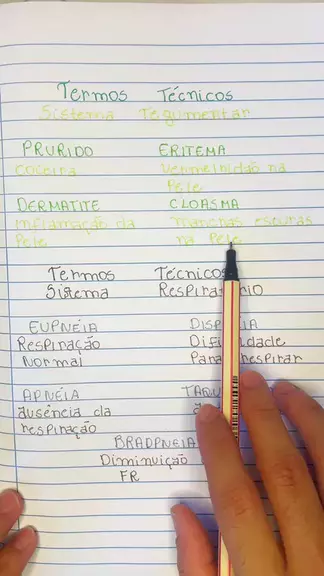 Termos Técnicos
Sistema Tegumentar
PRURIDO
Coceira
ERITEMA
Vermelhidão na
Pele
DERMATITE
Inflamação da
Pele
CLOASMA
Manchas escuras
na Pele
Termos Técnicos
Sistema
EUPNÉIA
Respiração
Normal
Para respirar
APNÉIA
ausência da
respiração
BRADPNEIA
Diminuição
FR